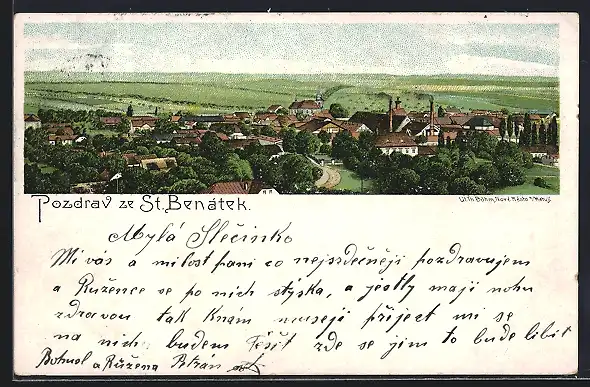 Pozdrav ze St. Benátek.
Mylá Slečinko
Mi vás a milost paní co nejsrdečněji pozdravujem
a Růžence se po nich stýská, a jestly mají nohu
zdravou tak K nám musejí přiject mi se
na nich budem Těšit zde se jim to bude líbit
Bohusl a Růžena